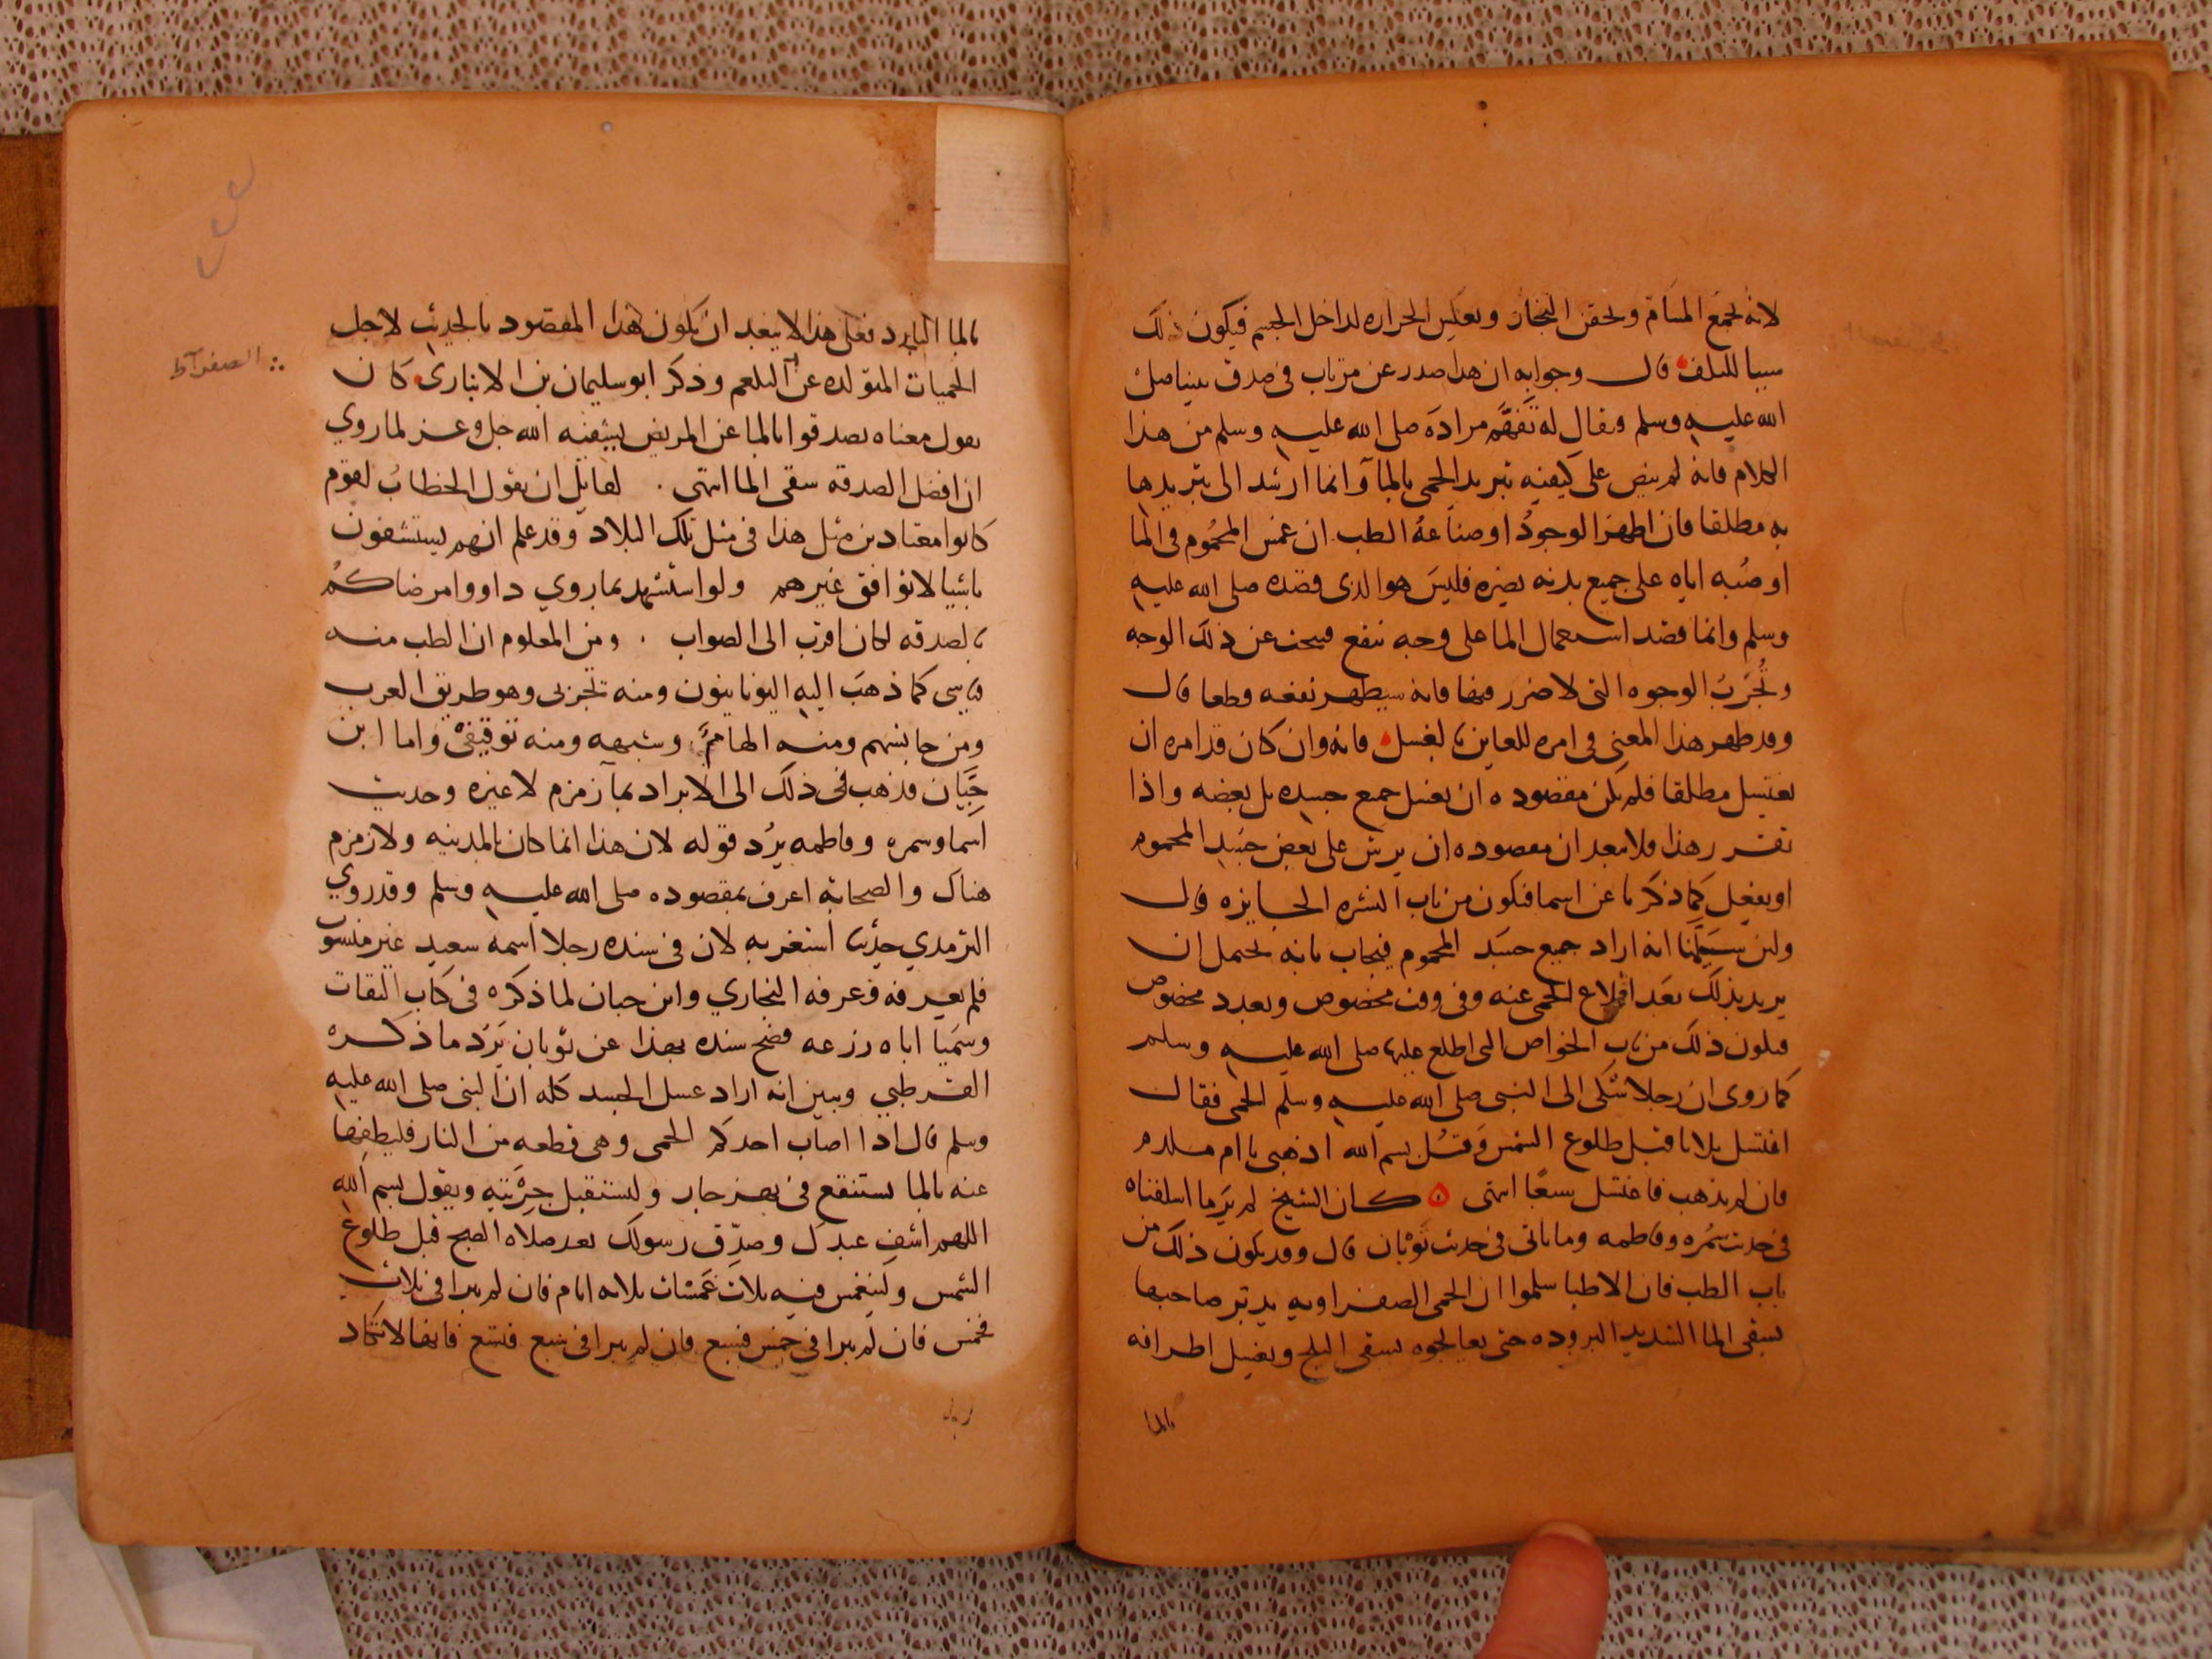 لانه يجمع المسام ويحقن البخار ويعكس الحراره لداخل الجسم فيكون ذلك
سببا للتلف قال وجوابه ان هذا صدر عن مرتاب في صدق نبينا صلى
الله عليه وسلم ويقال له تفهم مراده صلى الله عليه وسلم من هذا
الكلام فانه لم ينص على كيفيه تبريد الحمى بالمآ وانما ارشد الى تبريدها
به مطلقا فان اظهر الوجود او صناعة الطب ان غمس المحموم في الما
او صبه اياه على جميع بدنه يضره فليس هو الذى قصده صلى الله عليه
وسلم وانما قصد استعمال الما على وجه ينفع فيبحث عن ذلك الوجه
وتجرب الوجوه التى لا ضرر فيها فانه سيظهر نفعه قطعا قال
وقد ظهر هذا المعنى في امره للعاين بالغسل فانه وان كان قد امره ان
يغتسل مطلقا فلم يكن مقصوده ان يغسل جميع جسده بل بعضه واذا
تقرر هذا فلا يبعد ان مقصوده ان يرش على بعض جسد المحموم
او يفعل كما ذكرنا عن اسما فيكون من باب النشره الجايزه قال
ولين سلمنا انه اراد جميع جسد المحموم فيجاب بانه يحتمل ان
يريد بذلك بعد اقلاع الحمى عنه وفى وقت مخصوص وبعدد مخصوص
فيكون ذلك من باب الخواص التى اطلع عليها صلى الله عليه وسلم
كما روى ان رجلا شكى الى النبى صلى الله عليه وسلم الحمى فقال
اغتسل ثلاثا قبل طلوع الشمس وقل بسم الله اذهبى يا ام ملدم
فان لم يذهب فاغتسل سبعا انتهى كان الشيخ لم ير ما اسلفناه
في حديث سمره وفاطمه وما ياتى في حديث ثوبان قال وقد يكون ذلك من
باب الطب فان الاطبا سلموا ان الحمى الصفراويه يدبر صاحبها
بسقى الما الشديد البروده حتى يعالجوه بسقى الثلج ويغسل اطرافه
بالما
بالما البارد فعلى هذا لا يبعد ان يكون هذا المقصود بالحديث لاجل
الحميات المتولده عن البلغم وذكر ابو سليمان بن الانبارى كان
الصفرآ
يقول معناه تصدقوا بالما عن المريض يشفيه الله جل وعز لما روي
ان افضل الصدقه سقى الما انتهى . لقايل ان يقول الخطاب لقوم
كانوا معتادين مثل هذا فى مثل تلك البلاد وقد علم انهم يستشفون
باشيا لا توافق غيرهم ولو استشهد بما روي داووا مرضاكم
بالصدقه لكان اقرب الى الصواب . ومن المعلوم ان الطب منه
قياسي كما ذهب اليه اليونانيون ومنه تجربى وهو طريق العرب
ومن جانسهم ومنه الهامى وشبهه ومنه توقيفى واما ابن
حبان فذهب فى ذلك الى الابراد بمآ زمزم لا غيره وحديث
اسما وسمره وفاطمه يرد قوله لان هذا انما كان بالمدينه ولا زمزم
هناك والصحابة اعرف بمقصوده صلى الله عليه وسلم وقد روي
الترمدي حديثا استغربه لان في سنده رجلا اسمه سعيد غير منسوب
فلم يعرفه وعرفه البخاري وابن حبان لما ذكره في كتاب الثقات
وسميا اباه زرعه فصح سنده بهذا عن ثوبان يرد ما ذكره
القرطبي ويبين انه اراد غسل الجسد كله ان النبى صلى الله عليه
وسلم قال اذا اصاب احدكم الحمى وهى قطعه من النار فليطفيها
عنه بالما يستنقع في نهر جار وليستقبل جريته ويقول بسم الله
اللهم اشف عبدك وصدق رسولك بعد صلاه الصبح قبل طلوع
الشمس ولينغمس فيه ثلاث غمسات ثلاثه ايام فان لم يبرا في ثلاث
فخمس فان لم يبرا في خمس فسبع فان لم يبرا في سبع فتسع فانها لا تكاد